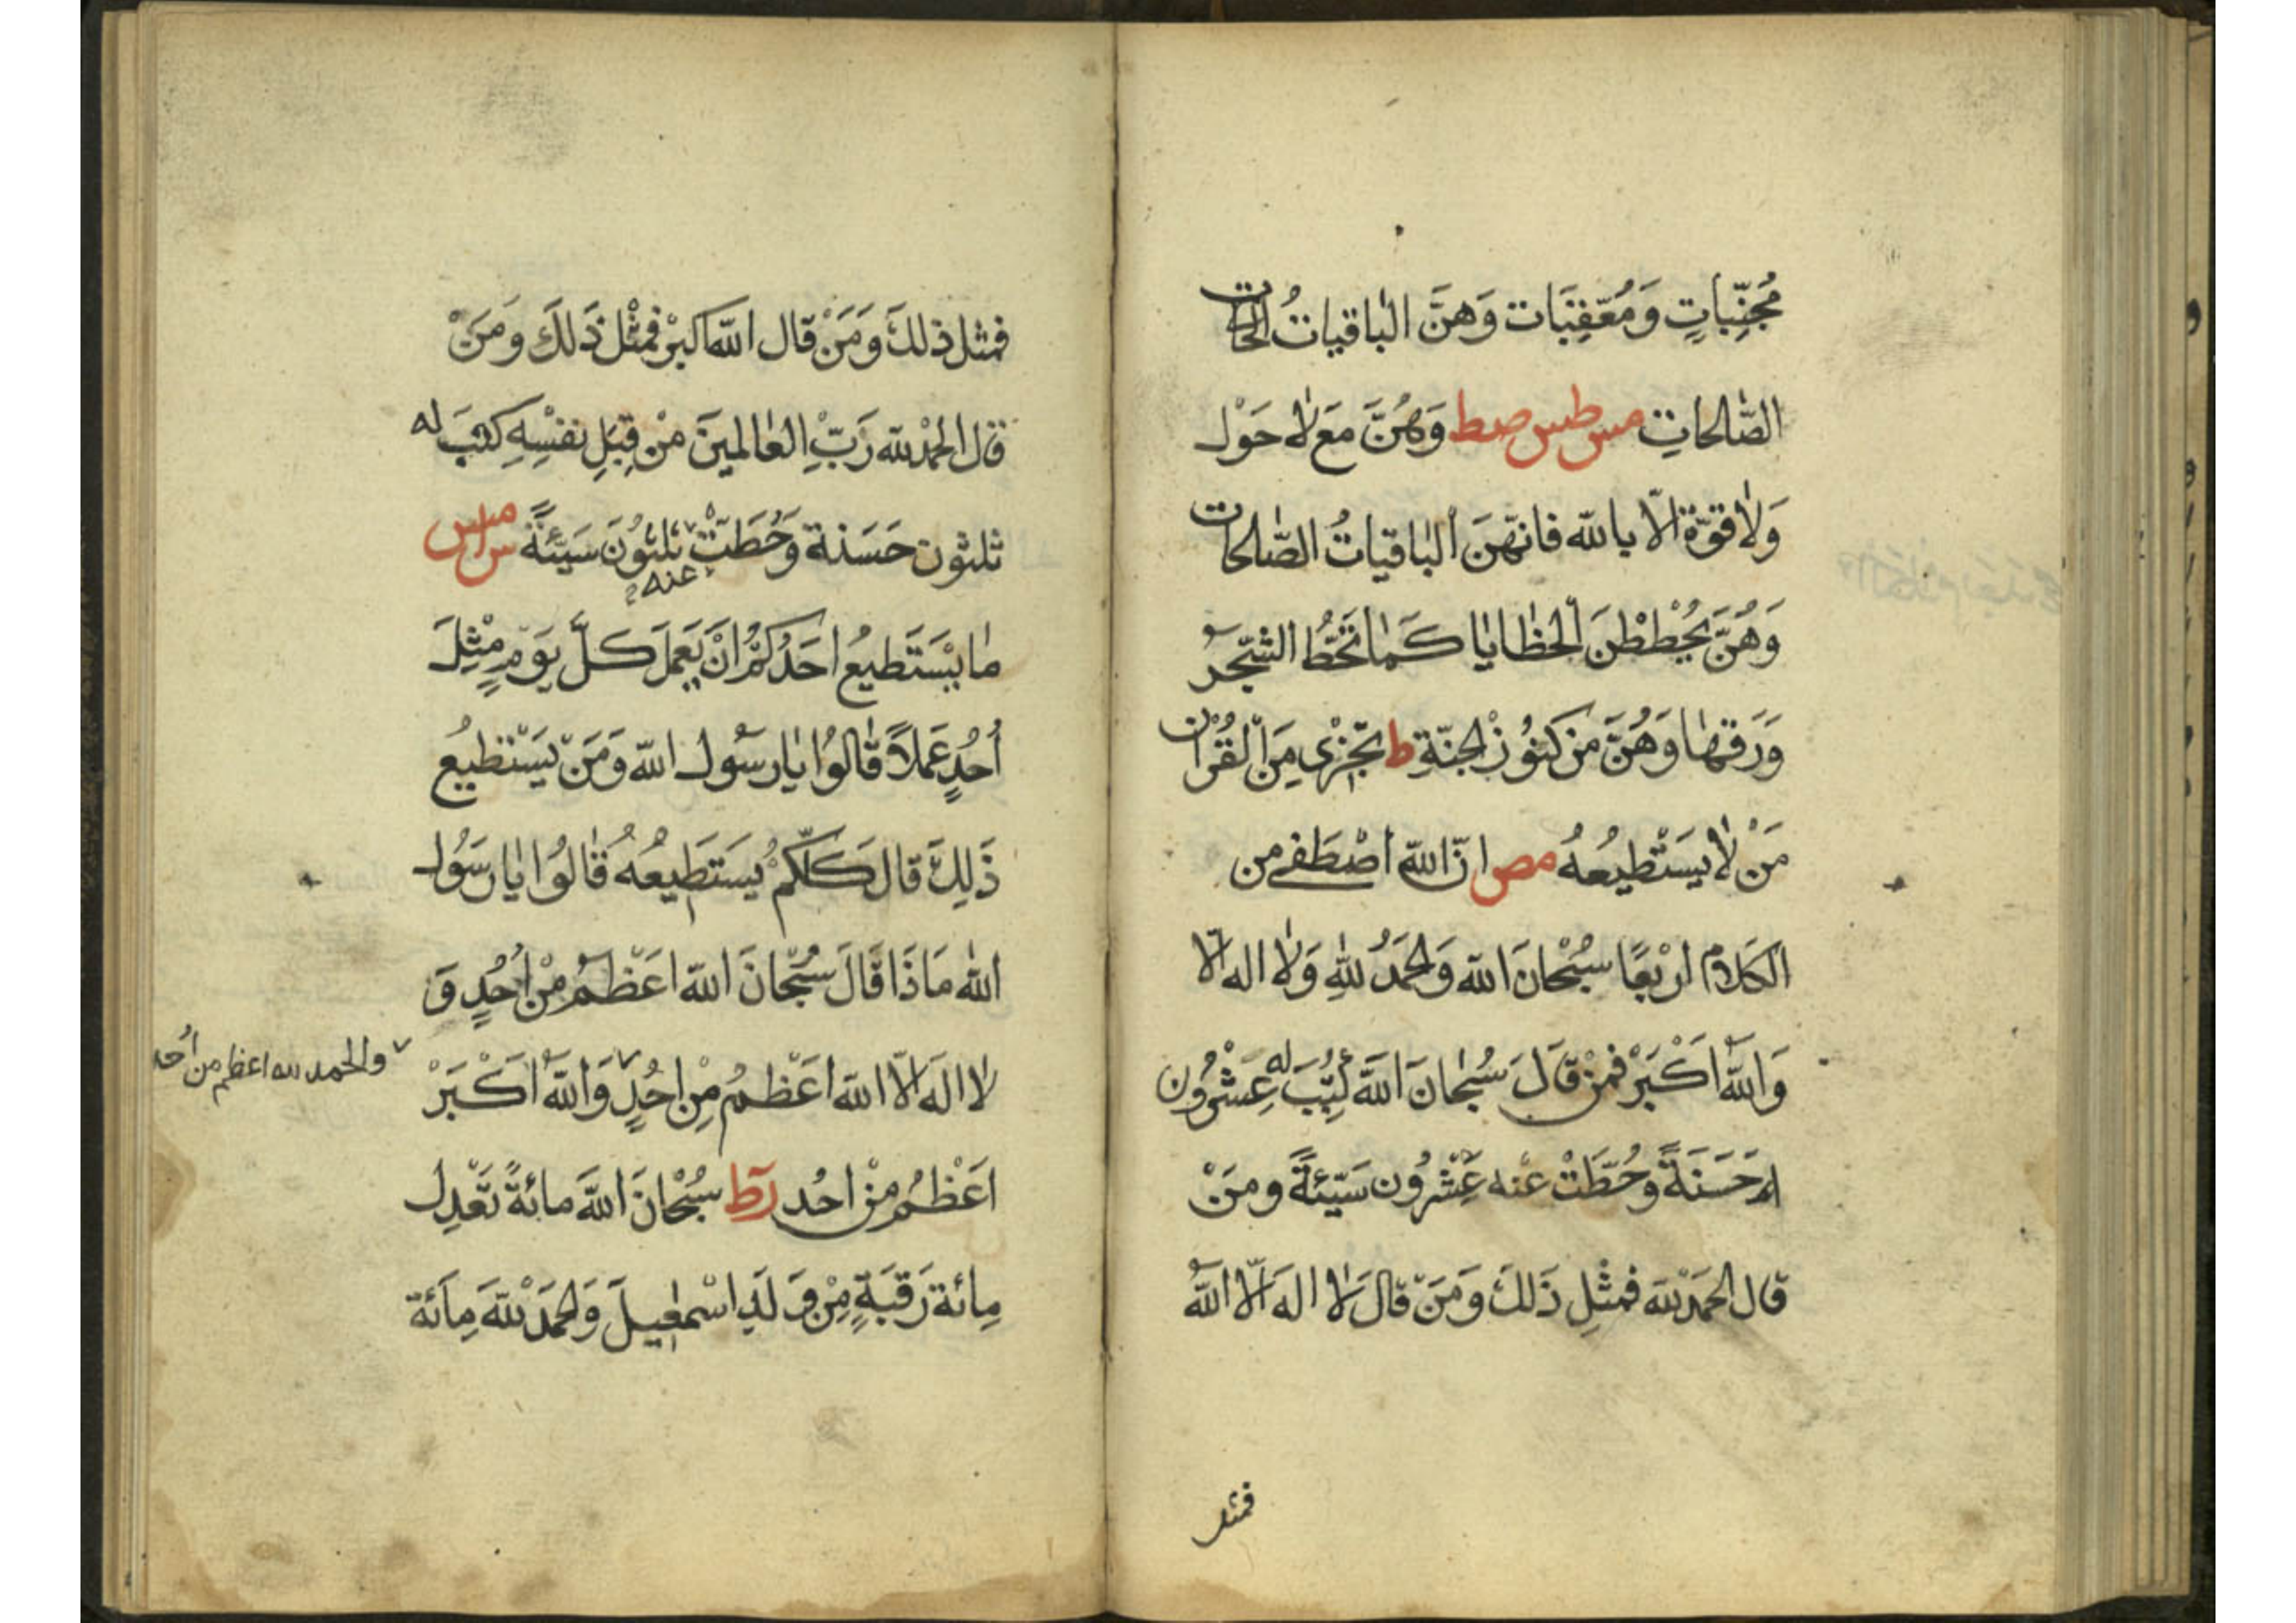 مُجَنِّبَاتٍ وَمُعَقِّبَات وَهُنَّ الْبَاقِيَاتُ
الصَّالحَاتِ مس طس صط وَهُنَّ مَعَ لَا حَوْلَ
وَلَا قُوَّةَ الَّا بالله فَانَّهُنَ الْبَاقِيَاتُ الصَّلحَات
وَهُنَّ يَحْطُطْنَ الْخَطَايَا كَمَا تَحُطُّ الشَّجَرُ
وَرَقَهَا وَهُنَّ من كنُوز الْجنَّةِ ط تجْزى مِنَ الْقُرْان
مَنْ لَا يَسْتَطِيعُهُ مص انَّ اللّه اصْطَفى من
الكَلَام ارْبعًا سُبْحَانَ الله وَالحَمْدُ للهِ وَلَا اله الَّا
وَاللَّهُ اَكْبَرْ فَمَنْ قَالَ سُبْحَانَ اللَّه كُتِبَ له عِشْرُون
حَسَنَةً وحُطَّتْ عنه عِشْرُون سَيّئَةً ومَنْ
قَال الحَمْدُ للّه فَمثْلِ ذَلكَ وَمَنْ قَالَ لَا الهَ الَّا اللَّهُ
فمثل
فمثل ذلكَ وَمَنْ قَال اللّه اكبرْ فمثْل ذَلكَ ومَنْ
قَال الحَمْدُ للّه رَبِّ العَالمينَ منْ قِبَلِ نفسِهِ كتبَ له
ثلثون حَسَنة وَحُطَّتْ ثلثُونَ سَيّئَةً س مس
عنه
مَا يَسْتَطيعُ احَدُكُمْ انْ يَعْمَلَ كلَّ يَوْمٍ مِثْلَ
أُحُدٍ عَمَلاً قَالُوا يَا رسَول اللّه وَمَنْ يَسْتَطيعُ
ذَلِكَ قال كلّكمْ يَستَطيعُهُ قَالُوا يَا رسَول
اللّه مَاذَا قَالَ سُبْحَانَ اللّه اعْظَمُ منْ اُحُدٍ وَ
لَا الهَ الَّا اللّه اعْظَمُ مِنْ احُدٍ وَاللّه اَكْبَرْ
والحمد لله اعظم من اُحد
اعَظْمُ منْ احُد ر ط سُبْحَانَ اللّهَ مائةً تعْدِل
مِائة رَقَبَةٍ مِنْ وَلَدِ اسْمعيلَ وَالحَمْدُ للّه مِائة